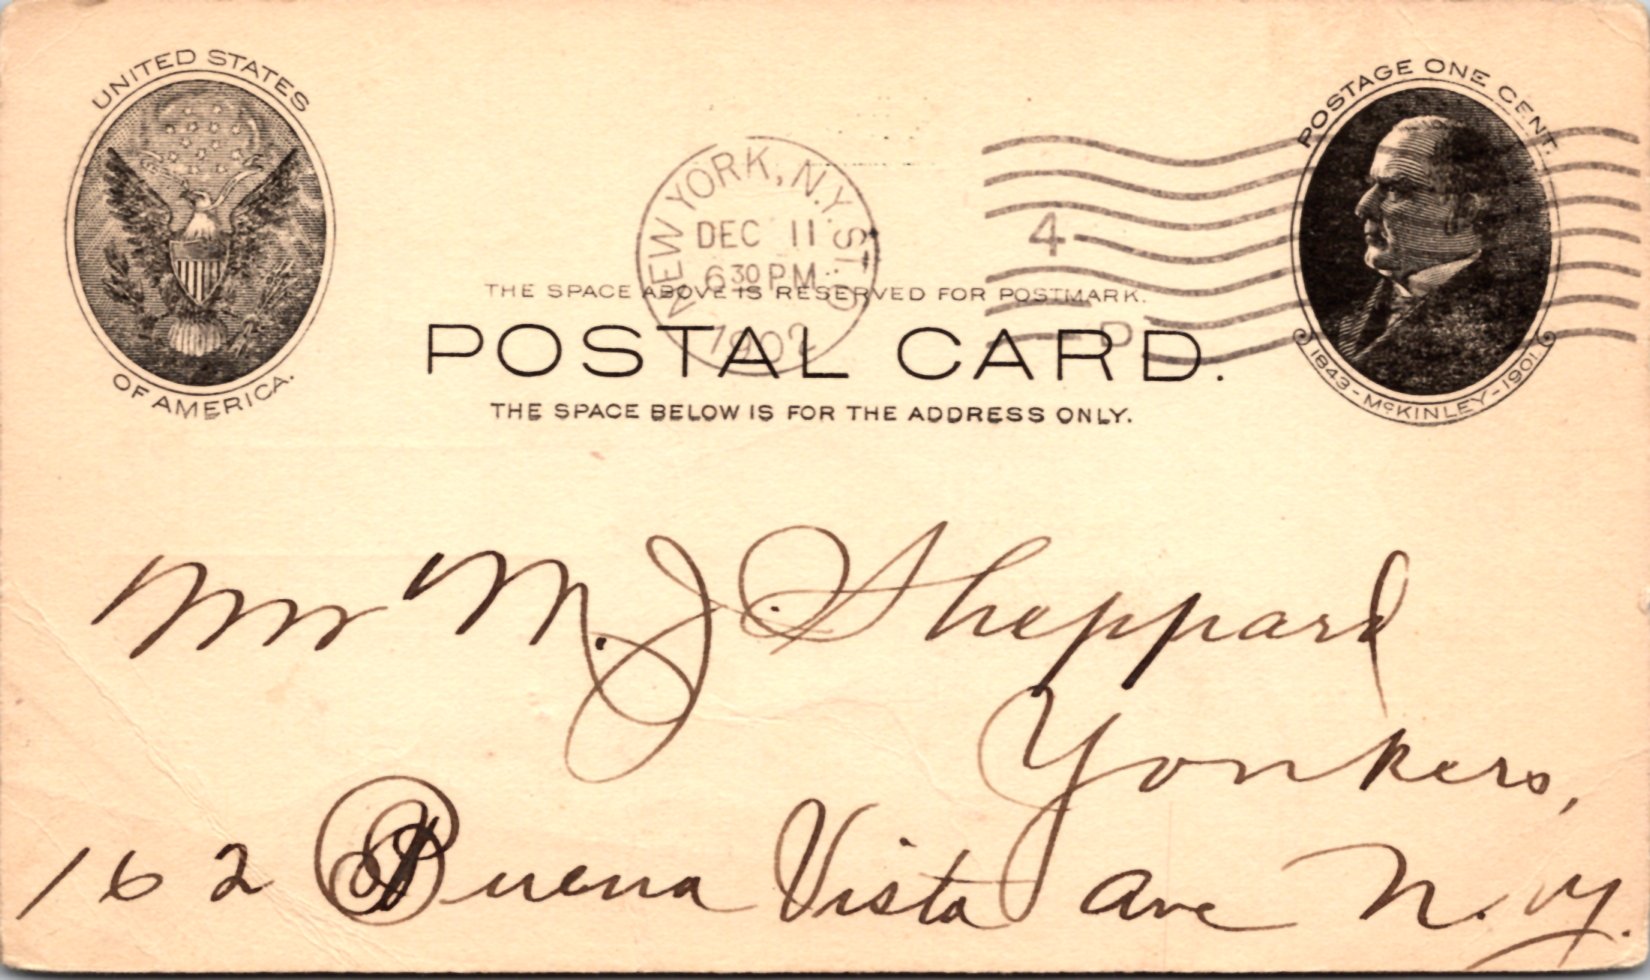 UNITED STATES
OF AMERICA.
POSTAGE ONE CENT.
1843-McKINLEY-1901.
NEW YORK, N.Y. ST. D
DEC 11
6 30 PM
1902
4
D
THE SPACE ABOVE IS RESERVED FOR POSTMARK.
POSTAL CARD.
THE SPACE BELOW IS FOR THE ADDRESS ONLY.
Mr M. J. Sheppard
Yonkers,
162 Buena Vista Ave N.Y.